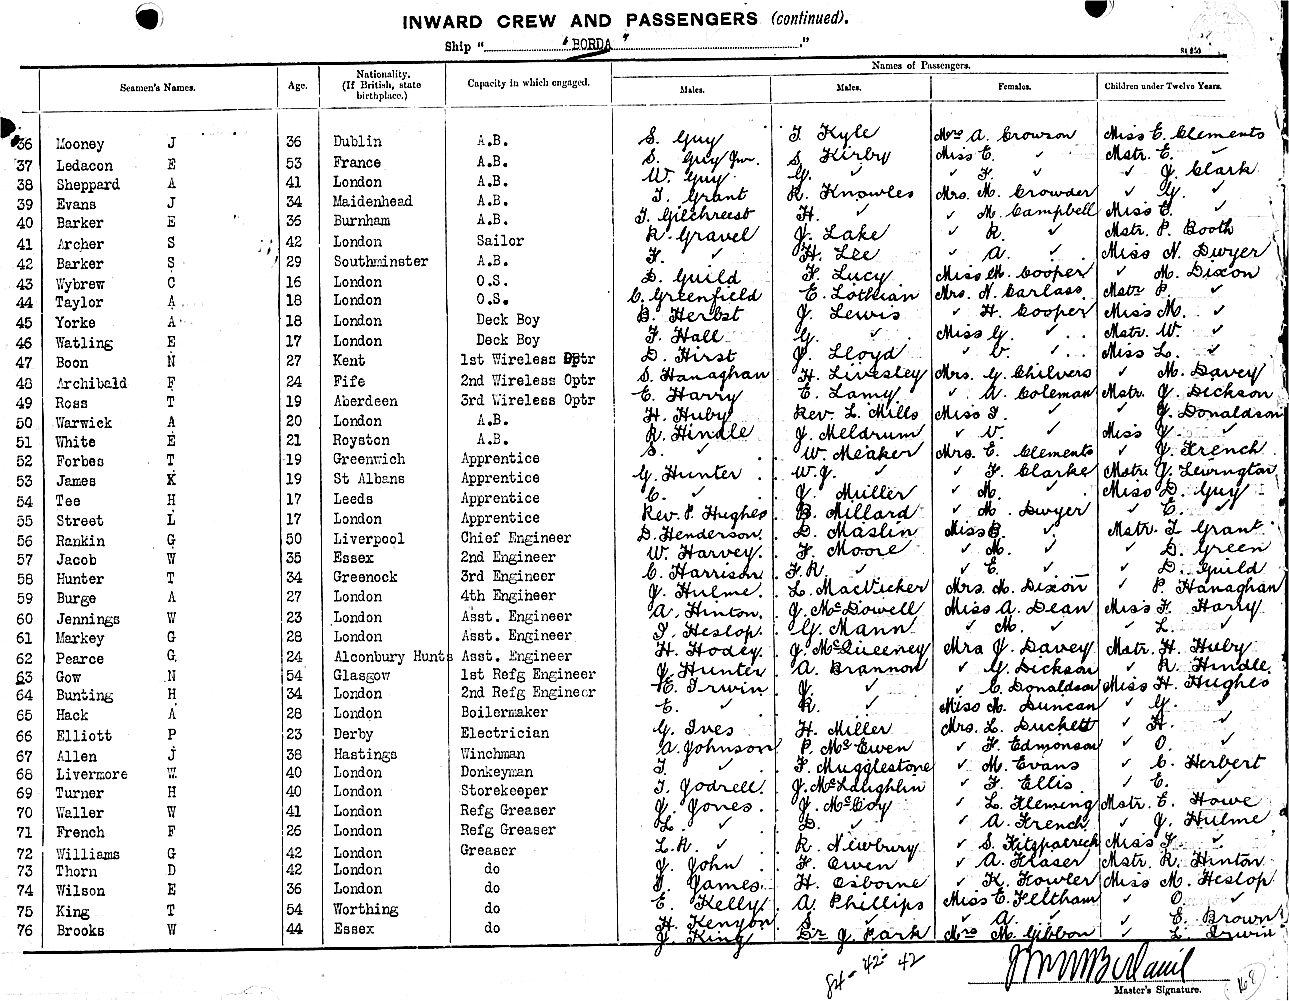 INWARD CREW AND PASSENGERS (continued).
Ship "BORDA"
Names of Passengers.
Seamen's Names. Age. Nationality. (If British, state birthplace.) Capacity in which engaged. Males. Males. Females. Children under Twelve Years.
36 Mooney J 36 Dublin A.B. S. Guy J. Kyle Mrs A. Crowson Miss E. Clements
37 Ledacon E 53 France A.B. S. Guy Jnr. S. Kirby Miss E. ✓ Mstr. E. ✓
38 Sheppard A 41 London A.B. W. Guy G. ✓ ✓ F. ✓ ✓ J. Clark
39 Evans J 34 Maidenhead A.B. J. Grant R. Knowles Mrs. M. Crowder ✓ G. ✓
40 Barker E 36 Burnham A.B. J. Gilchreest H. ✓ ✓ M. Campbell Miss E. ✓
41 Archer S 42 London Sailor R. Gravel J. Lake ✓ R. ✓ Mstr. P. Booth
42 Barker S 29 Southminster A.B. F. ✓ H. Lee ✓ A. ✓ Miss N. Dwyer
43 Wybrew C 16 London O.S. D. Guild F. Lucy Miss M. Cooper ✓ M. Dixon
44 Taylor A 18 London O.S. C. Greenfield E. Lothian Mrs. N. Carlass Mstr P. ✓
45 Yorke A 18 London Deck Boy B. Herbst J. Lewis ✓ H. Cooper Miss M. ✓
46 Watling E 17 London Deck Boy F. Hall G. ✓ Miss G. ✓ Mstr. W. ✓
47 Boon N 27 Kent 1st Wireless Optr D. Hirst J. Lloyd ✓ V. ✓ Miss L. ✓
48 Archibald F 24 Fife 2nd Wireless Optr S. Hanaghan H. Livesley Mrs. G. Chilvers ✓ M. Davey
49 Ross T 19 Aberdeen 3rd Wireless Optr E. Harry E. Lamy ✓ A. Coleman Mstr. J. Dickson
50 Warwick A 20 London A.B. H. Huby Rev. L. Mills Miss J. ✓ ✓ J. Donaldson
51 White E 21 Royston A.B. R. Hindle J. Meldrum ✓ V. ✓ Miss Y. ✓
52 Forbes T 19 Greenwich Apprentice S. ✓ W. Meaker Mrs. E. Clements ✓ J. French
53 James K 19 St Albans Apprentice G. Hunter W.J. ✓ ✓ F. Clarke Mstr. J. Lewington
54 Tee H 17 Leeds Apprentice C. ✓ J. Miller ✓ M. ✓ Miss D. Guy
55 Street L 17 London Apprentice Rev. P. Hughes B. Millard ✓ M. Dwyer ✓ E. ✓
56 Rankin G 50 Liverpool Chief Engineer D. Henderson D. Maslin Miss B. ✓ Mstr. I. Grant
57 Jacob W 35 Essex 2nd Engineer W. Harvey F. Moore ✓ M. ✓ ✓ D. Green
58 Hunter T 34 Greenock 3rd Engineer C. Harrison F.R. ✓ ✓ E. ✓ ✓ D. Guild
59 Burge A 27 London 4th Engineer J. Hulme L. MacVicker Mrs. M. Dixon ✓ P. Hanaghan
60 Jennings W 23 London Asst. Engineer A. Hinton J. McDowell Miss A. Dean Miss F. Harry
61 Markey G 28 London Asst. Engineer J. Heslop G. Mann ✓ M. ✓ ✓ L. ✓
62 Pearce G 24 Alconbury Hunts Asst. Engineer H. Hodey J. McQueeney Mrs J. Davey Mstr. H. Huby
63 Gow N 54 Glasgow 1st Refg Engineer J. Hunter A. Brannon ✓ G. Dickson ✓ R. Hindle
64 Bunting H 34 London 2nd Refg Engineer E. Irwin J. ✓ ✓ C. Donaldson Miss H. Hughes
65 Hack A 28 London Boilermaker E. ✓ R. ✓ Miss M. Duncan ✓ G. ✓
66 Elliott P 23 Derby Electrician G. Ives H. Miller Mrs. L. Duckett ✓ H. ✓
67 Allen J 38 Hastings Winchman A. Johnson P. McEwen ✓ F. Edmonson ✓ O. ✓
68 Livermore W. 40 London Donkeyman J. ✓ F. Mugglestone ✓ M. Evans ✓ C. Herbert
69 Turner H 40 London Storekeeper J. Jodrell J. McLaughlin ✓ F. Ellis ✓ E. ✓
70 Waller W 41 London Refg Greaser J. Jones J. McCoy ✓ L. Fleming Mstr. E. Howe
71 French F 26 London Refg Greaser L. ✓ D. ✓ ✓ A. French ✓ J. Hulme
72 Williams G 42 London Greaser L.R. ✓ R. Newbury ✓ S. Fitzpatrick Miss F. ✓
73 Thorn D 42 London do J. John F. Owen ✓ A. Fraser Mstr R. Hinton
74 Wilson E 36 London do J. James H. Osborne ✓ K. Fowler Miss M. Heslop
75 King T 54 Worthing do E. Kelly A. Phillips Miss E. Feltham ✓ O. ✓
76 Brooks W 44 Essex do H. Kenyon S. ✓ ✓ A. ✓ ✓ E. Brown
J. King Dr J. Park Mrs M. Gibbon ✓ L. Irwin
84 - 42 - 42
Master's Signature.
168